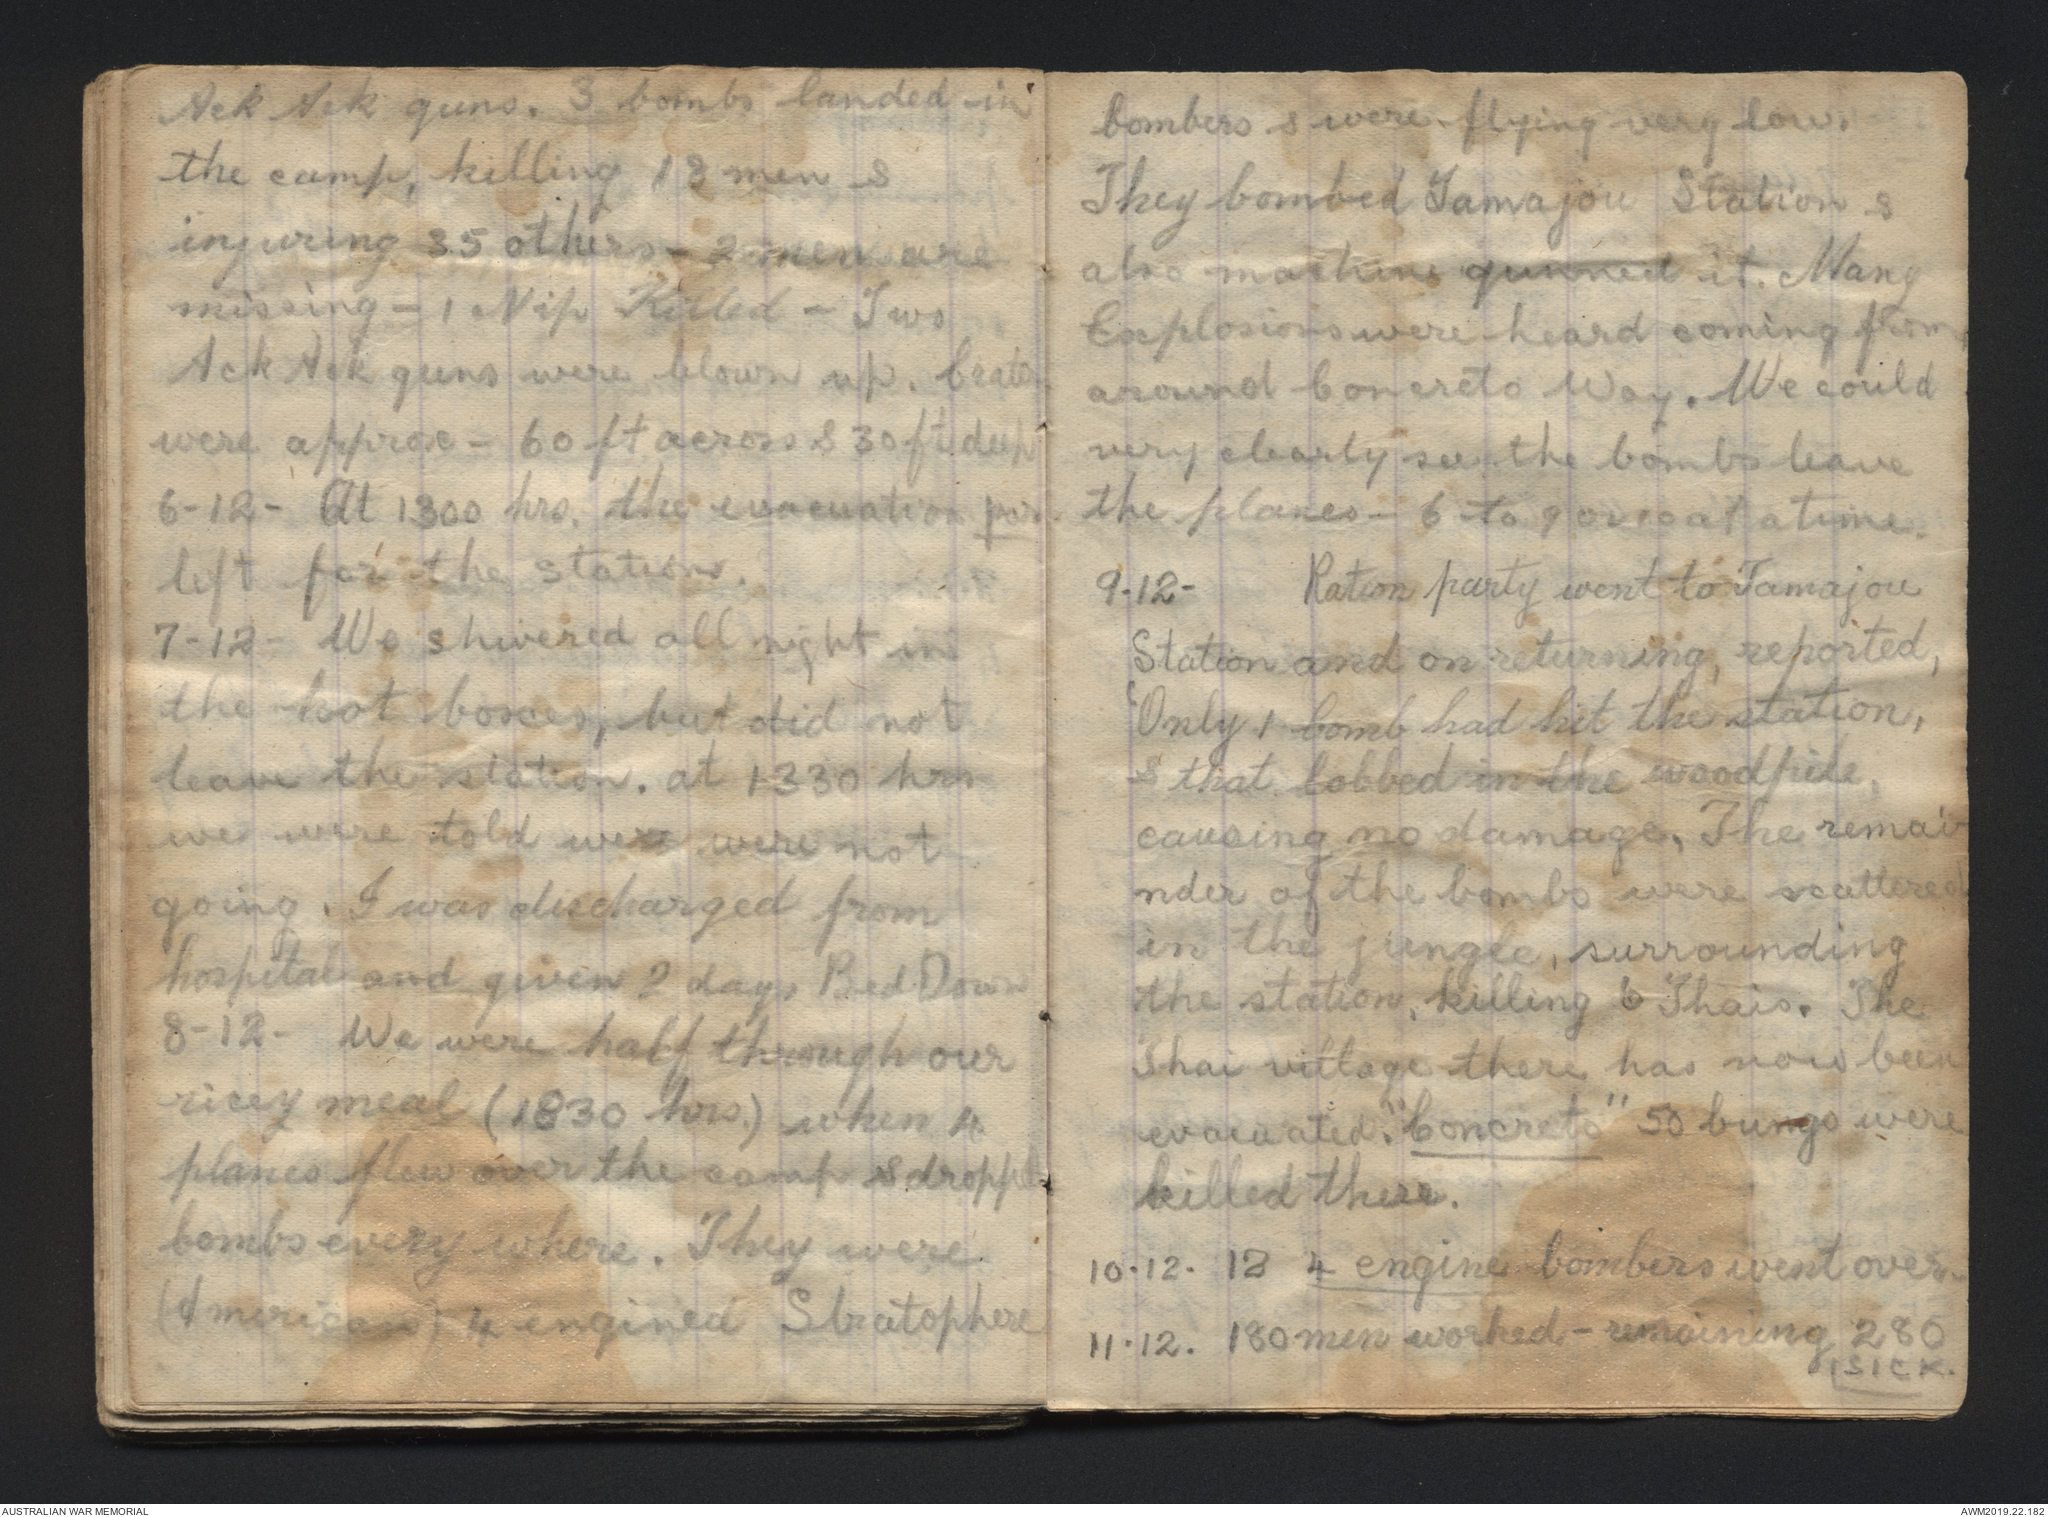 Ack Ack guns. 3 bombs landed in
the camp, killing 18 men &
injuring 35 others - 2 men are
missing - 1 Nip Killed - Two
Ack Ack guns were blown up. Crater
were approx - 60 ft across & 30 ft deep
6-12- At 1300 hrs. the evacuation par
left for the station.
7-12- We shivered all night in
the hot boxes, but did not
leave the station. at 1330 hrs
we were told were were not
going. I was discharged from
hospital and given 2 days Bed Down
8-12- We were half through our
ricey meal (1830 hrs.) when 4
planes flew over the camp & dropped
bombs every where. They were
(American) 4 engined Stratophere
bombers & were flying very low.
They bombed Tamajou Station &
also machine gunned it. Many
Explosions were heard coming from
around Concreto Way. We could
very clearly see the bombs leave
the planes - 6 to 9 or so at a time.
9-12- Ration party went to Tamajou
Station and on returning, reported,
'Only 1 bomb had hit the station,
& that lobbed in the woodpile,
causing no damage. The remai
nder of the bombs were scattered
in the jungle, surrounding
the station, killing 6 Thais. The
Thai village there has now been
evacuated. "Concreto" 50 bungs were
killed there.
10-12. 12 4 engine bombers went over.
11-12. 180 men worked - remaining 280
SICK.
AUSTRALIAN WAR MEMORIAL
AWM2019.22.182